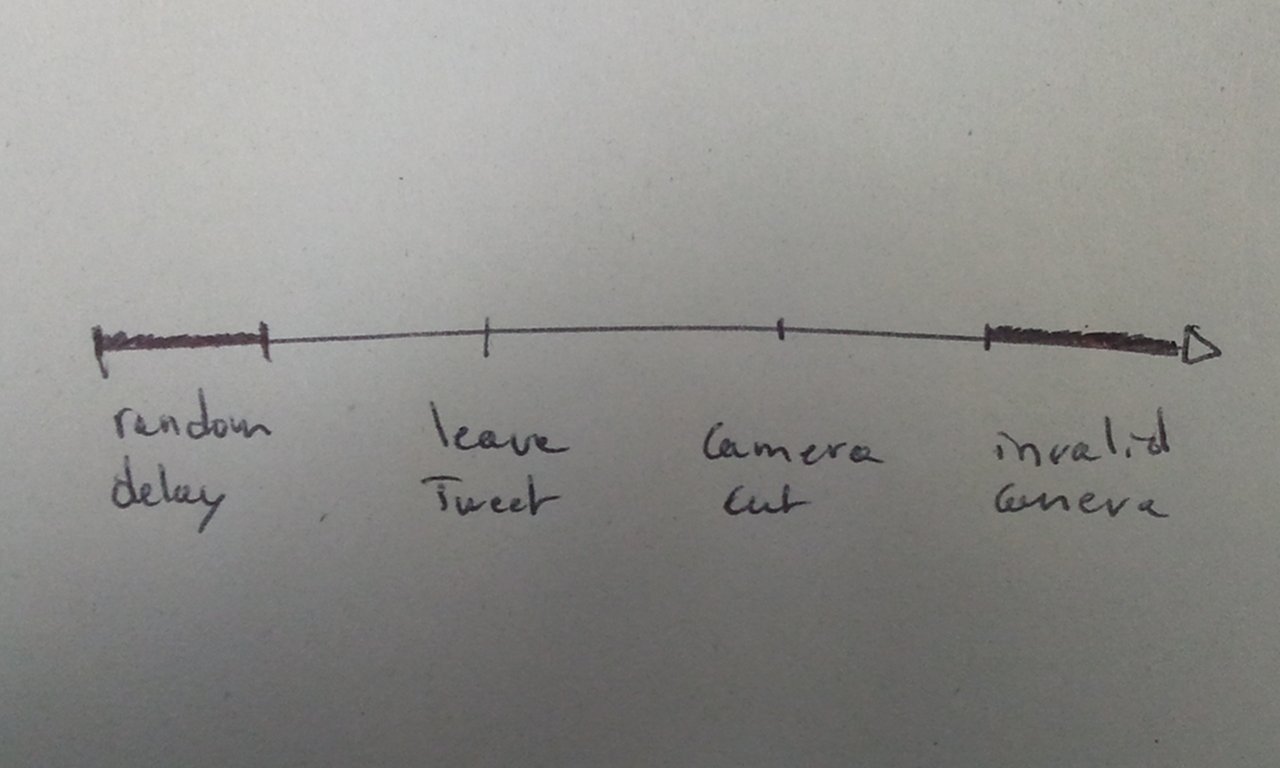 random
delay
leave
Tweet
Camera
Cut
invalid
Camera